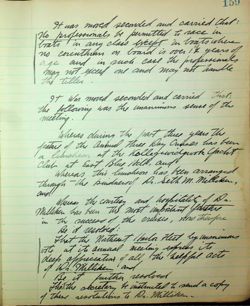 159
It was moved seconded and carried that
no professionals be permitted to race in
boats in any class except in boats where
no corinthian on board is over 18 years of
age and in such case the professionals
may not exceed one and may not handle
the tiller.
It was moved seconded and carried that
the following was the unanimous sense of the
meeting.
Whereas during the past three years the
feature of the Annual Three Day Cruises has been
a luncheon at the
Club at East Blue Hill, and
Whereas this luncheon has been arranged
through the kindness of Dr. Seth M. Milliken,
and
Whereas the courtesy and hospitality of Dr.
Milliken has been the most important feature
in the success of the cruises, now therefore
Be it resolved:
That the Northeast Harbor Fleet by unanimous
vote at its annual meeting express its
deep appreciation of all the helpful acts
of Dr. Milliken.
Be it further resolved
That the secretary be instructed to send a copy
of these resolutions to Dr. Milliken.